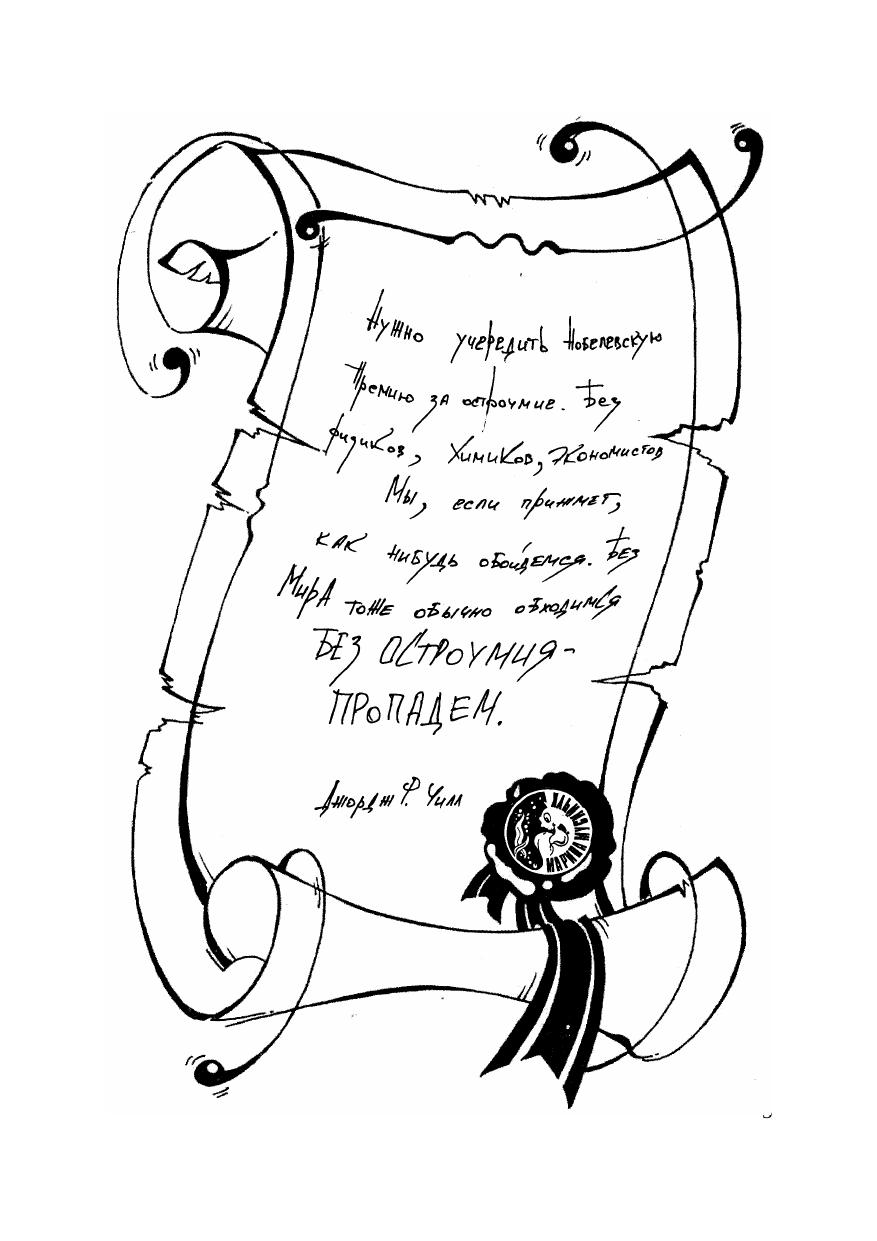 Нужно учередить Нобелевскую
Премию за остроумие. Без
физиков, химиков, экономистов
Мы, если прижмет,
как нибудь обойдемся. Без
Мира тоже обычно обходимся
БЕЗ ОСТРОУМИЯ-
ПРОПАДЕМ.
Джордж Ф. Уилл
МАРИНА